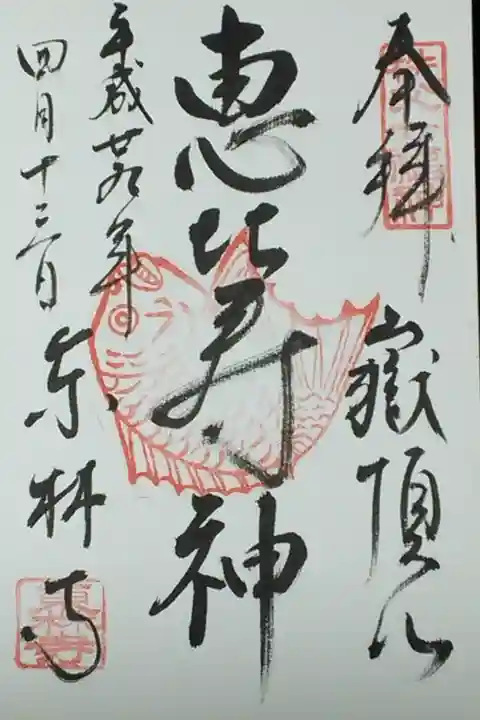 奉拝
嶽頂山
恵比寿神
平成廿九年
四月十三日
東林寺
東林寺